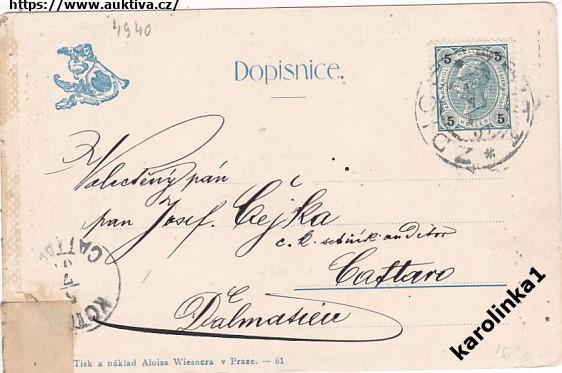 https://www.auktiva.cz/
4940
Dopisnice.
5 5
5 5
Velectěný pán
pan Josef Čejka
c. k. setník auditor
Cattaro
Dalmatien
CATTA
KOT
Tisk a náklad Aloisa Wiesnera v Praze. — 61
karolinka1